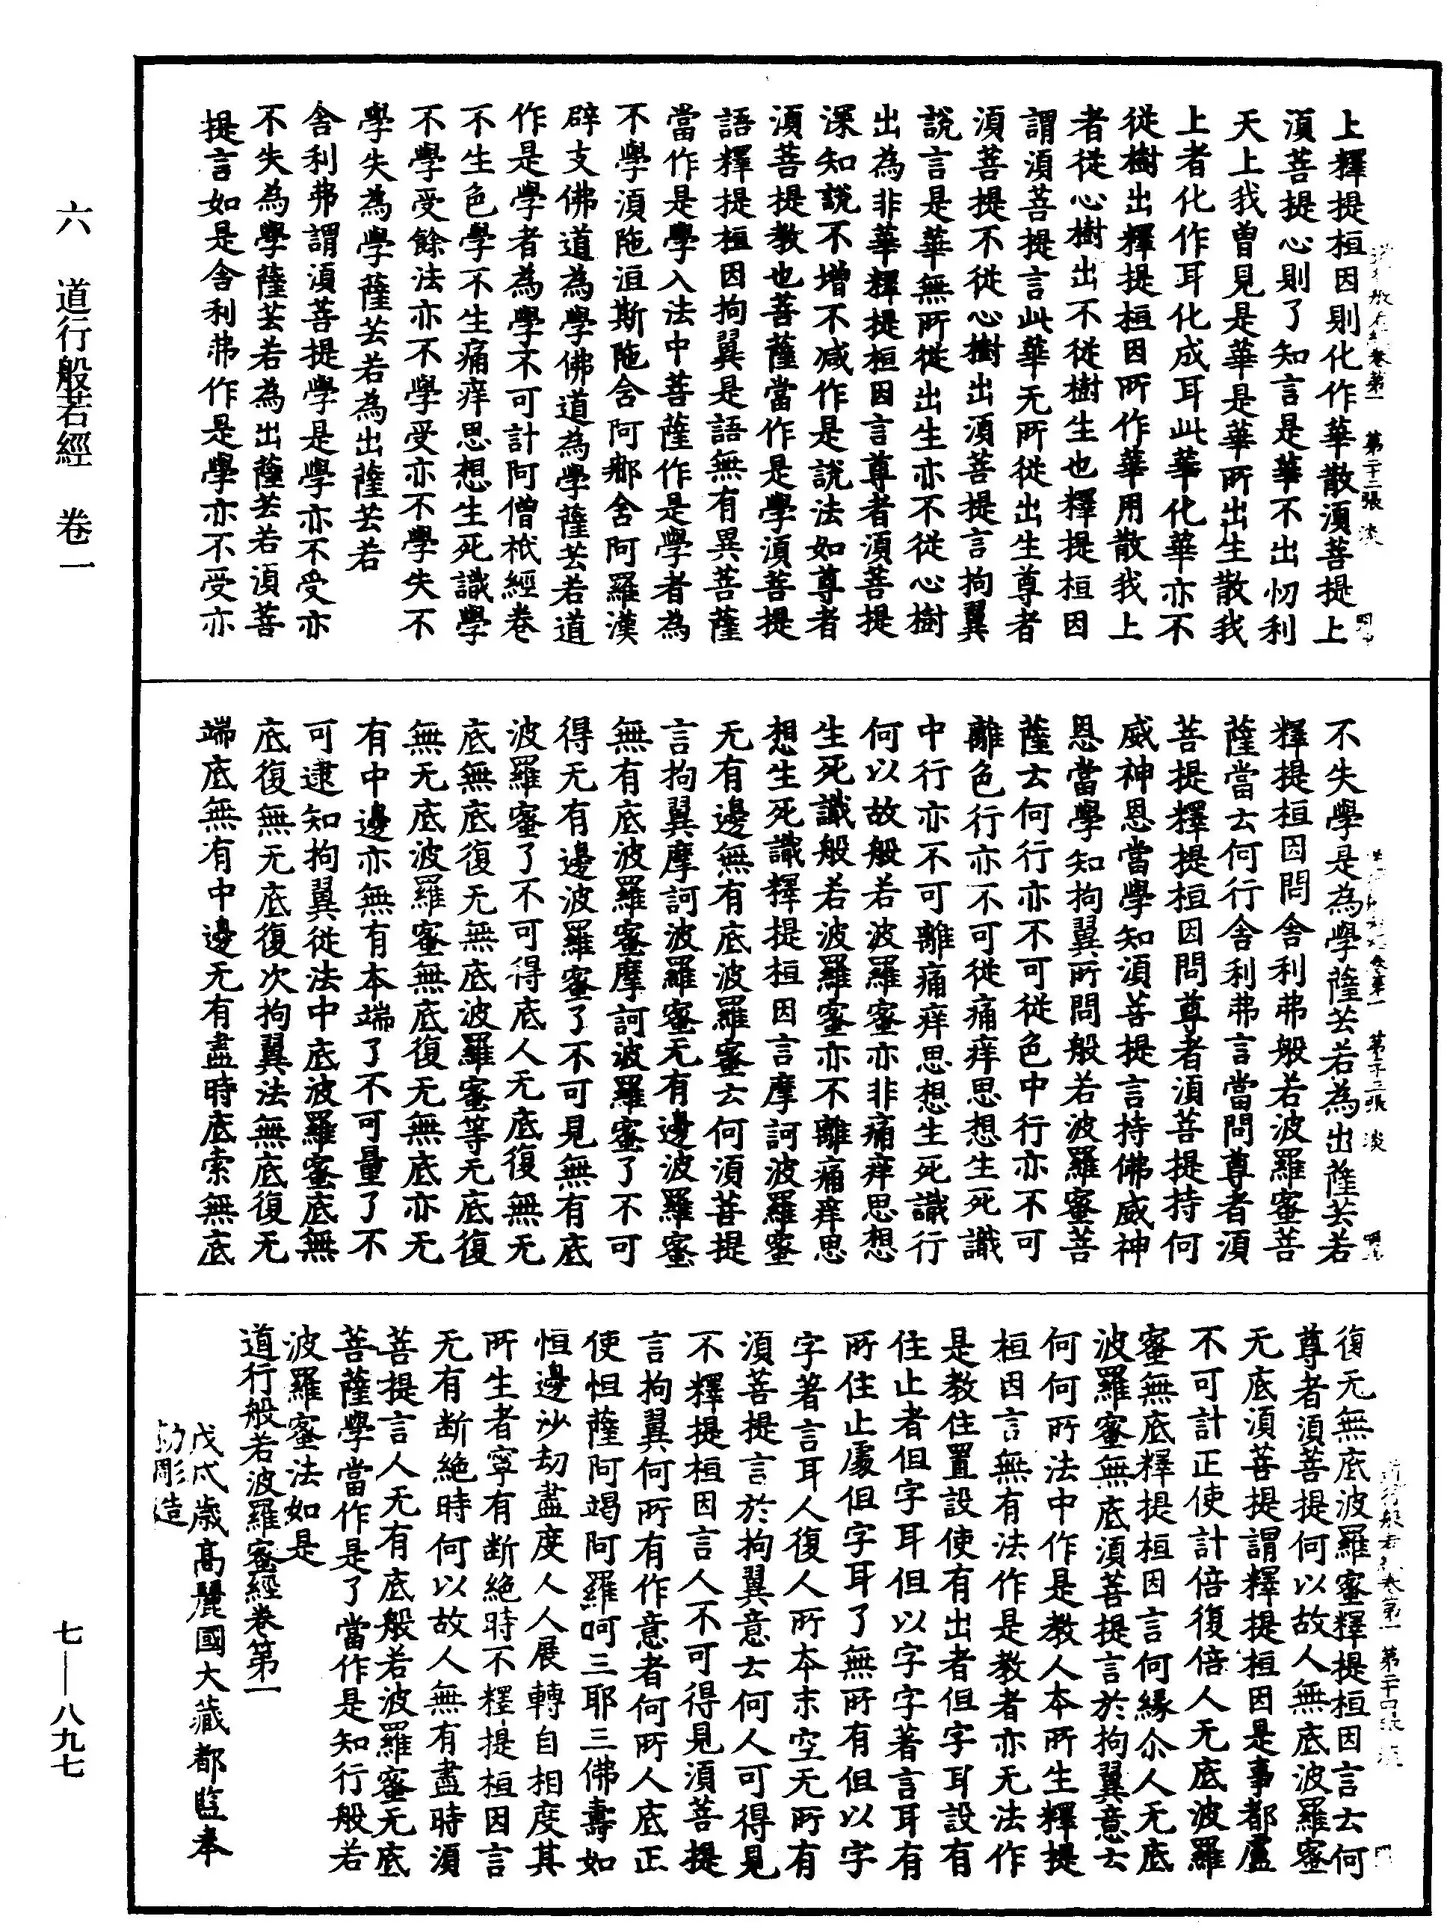 上釋提桓因則化作華散湏菩提上
湏菩提心則了知言是華不出忉利
天上我曾見是華是華所出生散我
上者化作耳化成耳此華化華亦不
從樹出釋提桓因所作華用散我上
者從心樹出不從樹生也釋提桓因
謂湏菩提言此華无所從出生尊者
湏菩提不從心樹出湏菩提言拘翼
說言是華無所從出生亦不從心樹
出為非華釋提桓因言尊者湏菩提
深知說不增不减作是說法如尊者
湏菩提教也菩薩當作是學湏菩提
語釋提桓因拘翼是語無有異菩薩
當作是學入法中菩薩作是學者為
不學湏陁洹斯陁含阿𨚗含阿羅漢
辟支佛道為學佛道為學薩芸若道
作是學者為學不可計阿僧祇經卷
不生色學不生痛痒思想生死識學
不學受餘法亦不學受亦不學失不
學失為學薩芸若為出薩芸若
舍利弗謂湏菩提學是學亦不受亦
不失為學薩芸若為出薩芸若湏菩
提言如是舍利弗作是學亦不受亦
不失學是為學薩芸若為出薩芸若
釋提桓因問舍利弗般若波羅蜜菩
薩當云何行舍利弗言當問尊者湏
菩提釋提桓因問尊者湏菩提持何
威神恩當學知湏菩提言持佛威神
恩當學知拘翼所問般若波羅蜜菩
薩云何行亦不可從色中行亦不可
離色行亦不可從痛痒思想生死識
中行亦不可離痛痒思想生死識行
何以故般若波羅蜜亦非痛痒思想
生死識般若波羅蜜亦不離痛痒思
想生死識釋提桓因言摩訶波羅蜜
无有邊無有底波羅蜜云何湏菩提
言拘翼摩訶波羅蜜无有邊波羅蜜
無有底波羅蜜摩訶波羅蜜了不可
得无有邊波羅蜜了不可見無有底
波羅蜜了不可得底人无底復無无
底無底復无無底波羅蜜等无底復
無无底波羅蜜無底復无無底亦无
有中邊亦無有本端了不可量了不
可逮知拘翼從法中底波羅蜜底無
底復無无底復次拘翼法無底復无
端底無有中邊无有盡時底索無底
復无無底波羅蜜釋提桓因言云何
尊者湏菩提何以故人無底波羅蜜
无底湏菩提謂釋提桓因是事都盧
不可計正使計倍復倍人无底波羅
蜜無底釋提桓因言何緣尒人无底
波羅蜜無底湏菩提言於拘翼意云
何何所法中作是教人本所生釋提
桓因言無有法作是教者亦无法作
是教住置設使有出者但字耳設有
住止者但字耳但以字字著言耳有
所住止處但字耳了無所有但以字
字著言耳人復人所本末空无所有
湏菩提言於拘翼意云何人可得見
不釋提桓因言人不可得見湏菩提
言拘翼何所有作意者何所人底正
使怛薩阿竭阿羅呵三耶三佛壽如
恒邊沙劫盡度人人展轉自相度其
所生者寧有断絶時不釋提桓因言
无有断絶時何以故人無有盡時湏
菩提言人无有底般若波羅蜜无底
菩薩學當作是了當作是知行般若
波羅蜜法如是
道行般若波羅蜜經卷第一
戊戌歲高麗國大藏都監奉
勑彫造
六 道行般若經 卷一
七—八九七